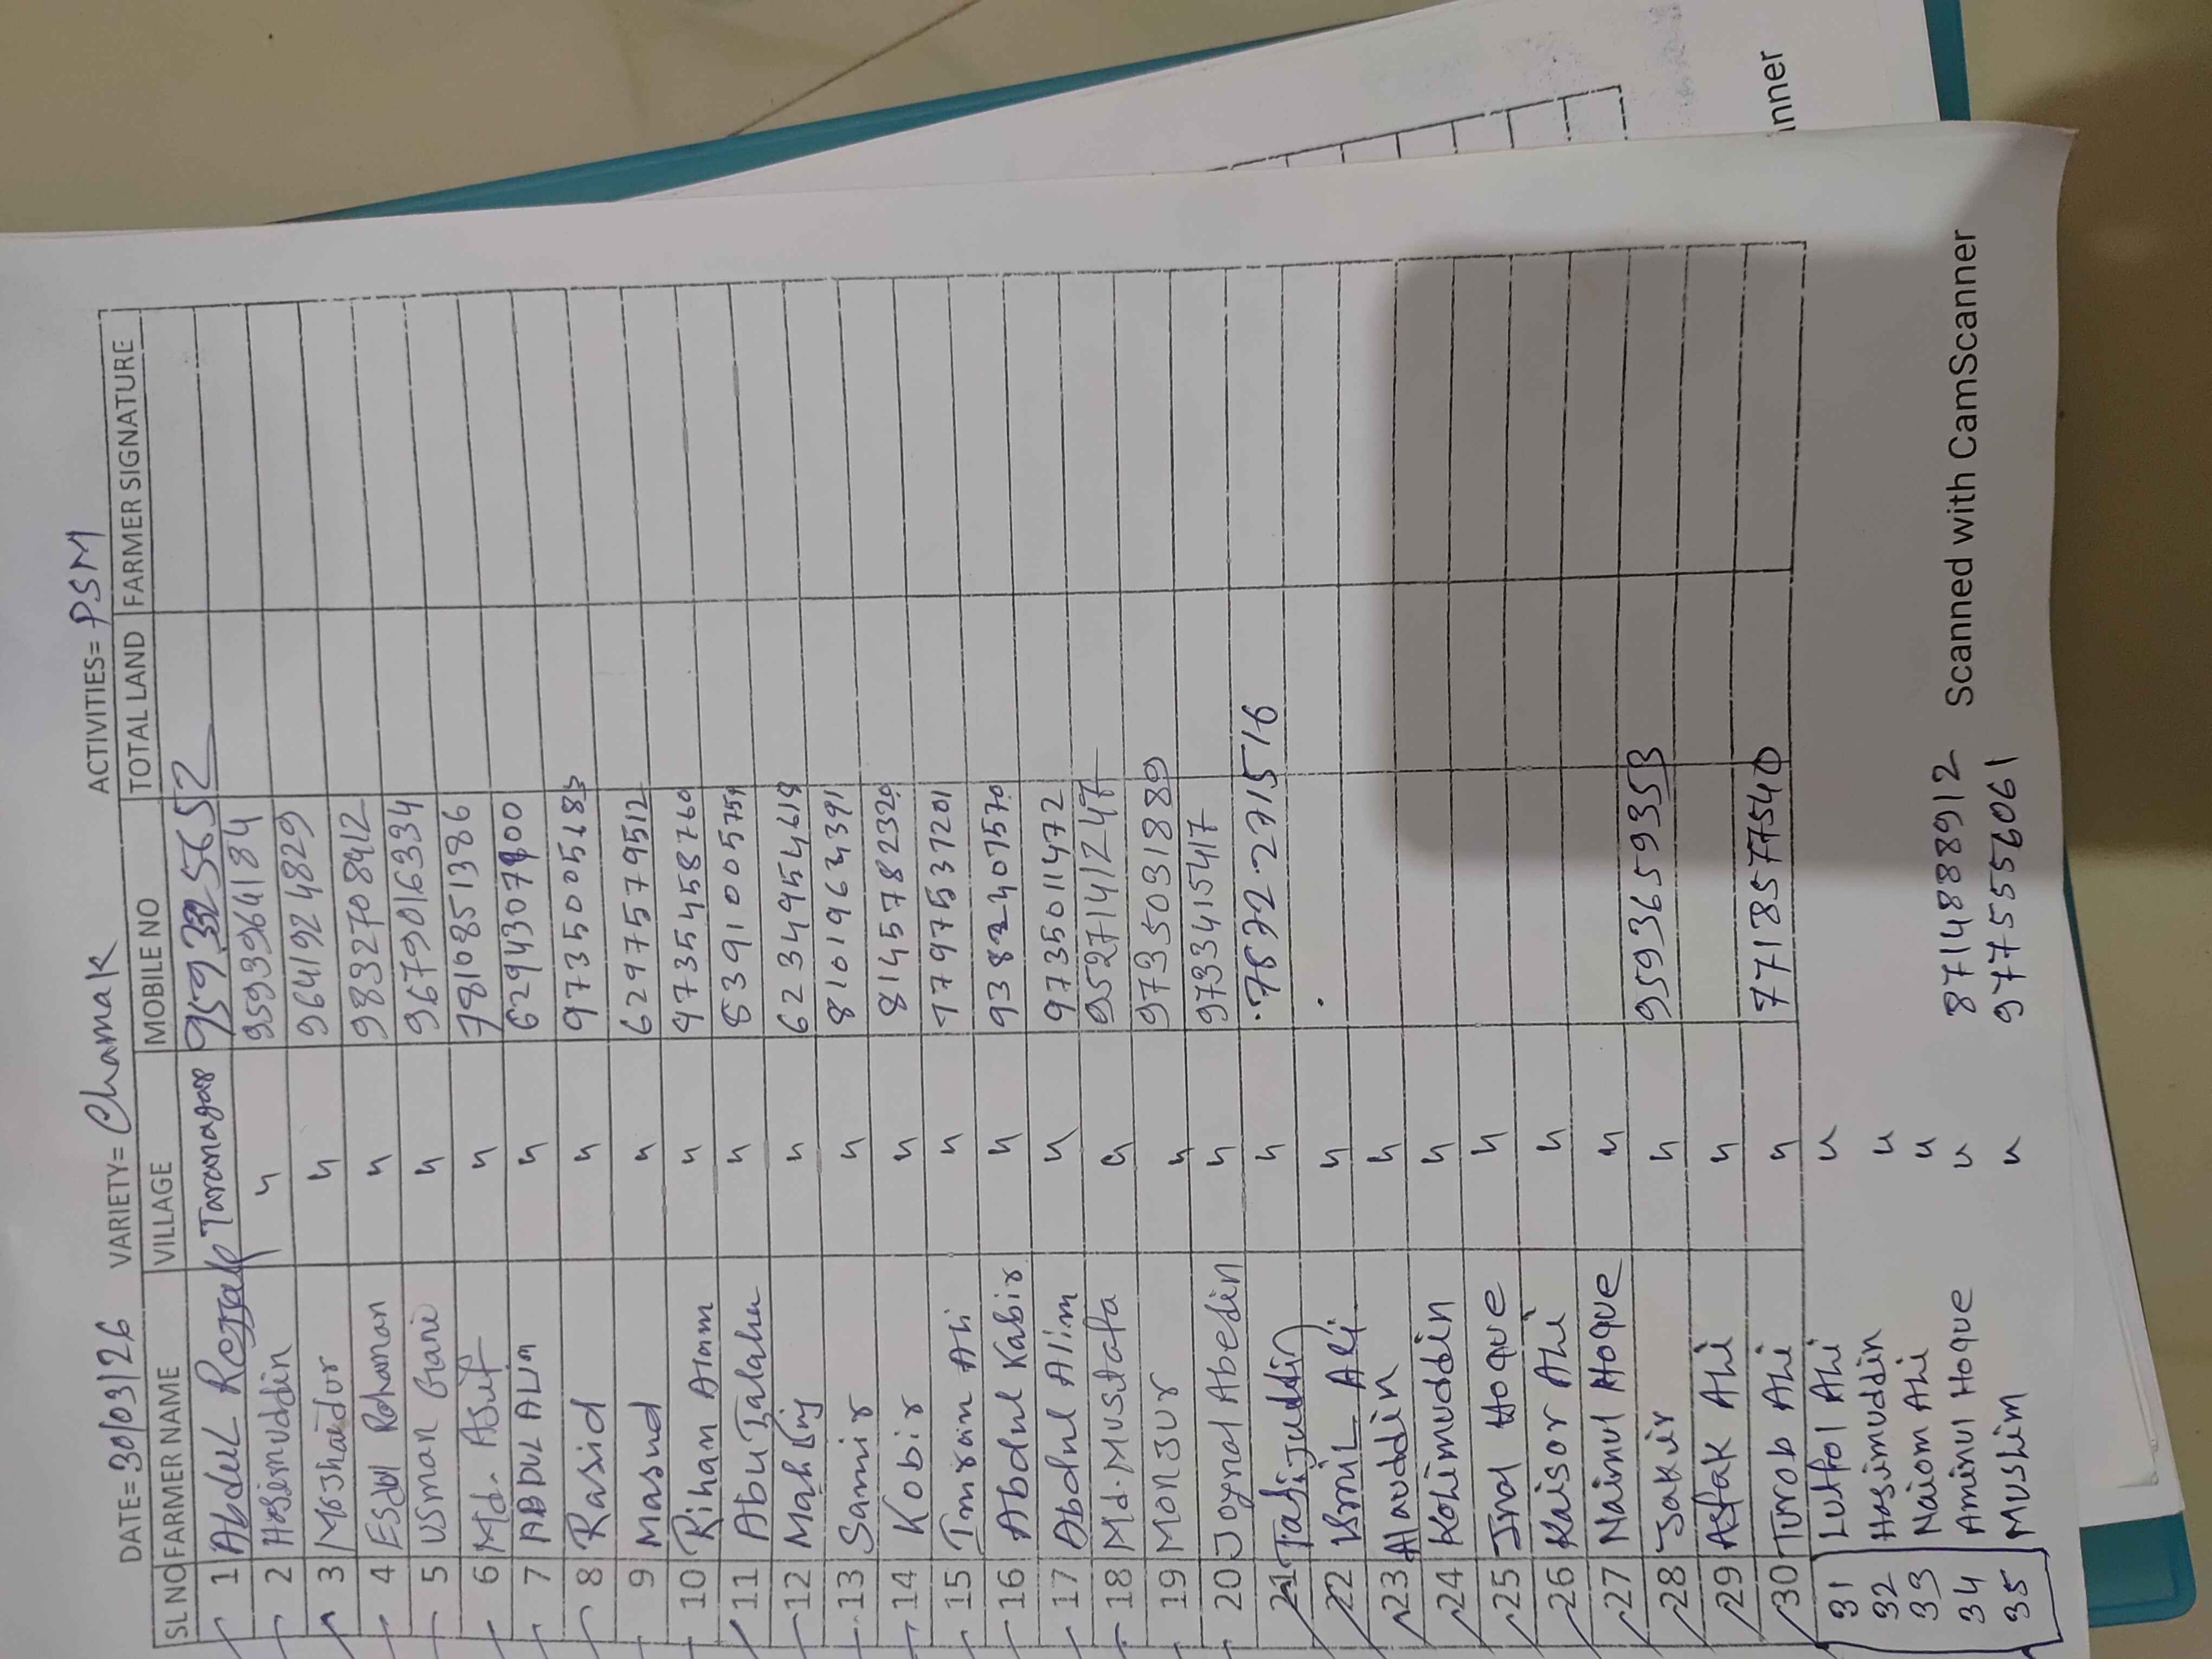 DATE= 30/03/26 VARIETY= Chamak ACTIVITIES= PSM
SL NO FARMER NAME VILLAGE MOBILE NO TOTAL LAND FARMER SIGNATURE
1 Abdul Rozzak Taranagar 9593325652
2 Hasimuddin 〃 9593964184
3 Moshaidur 〃 9641924829
4 Esabl Rohaman 〃 9832708412
5 Usman Gani 〃 9679016334
6 Md. Asif 〃 7810851386
7 ABDUL ALIM 〃
8 Rasid 〃 9735005183
9 Masud 〃 6297579512
10 Rihan Alam 〃 9735458760
11 Abu Talaha 〃
12 〃
13 Samir 〃
14 Kobir 〃
15 Imran Ali 〃 7797537201
16 Abdul Kabir 〃 9382407570
17 Abdul Alim 〃 9735011472
18 Md. Mustafa 〃
19 Monsur 〃 9735031889
20 Joynal Abedin 〃 9733415417
21 Tajijuddin 〃
22 Ismil Ali 〃
23 Alauddin 〃
24 Kohimuddin 〃
25 Inal Hoque 〃
26 Kaisor Ali 〃
27 Nainul Hoque 〃
28 Jakir 〃 9593659353
29 Asfak Ali 〃
30 Turob Ali 〃
31 Lutfol Ali 〃
32 Hasimuddin 〃
33 Naiom Ali 〃
34 Aminul Hoque 〃 8714888912
35 Muslim 〃 97755556061
Scanned with CamScanner
nner